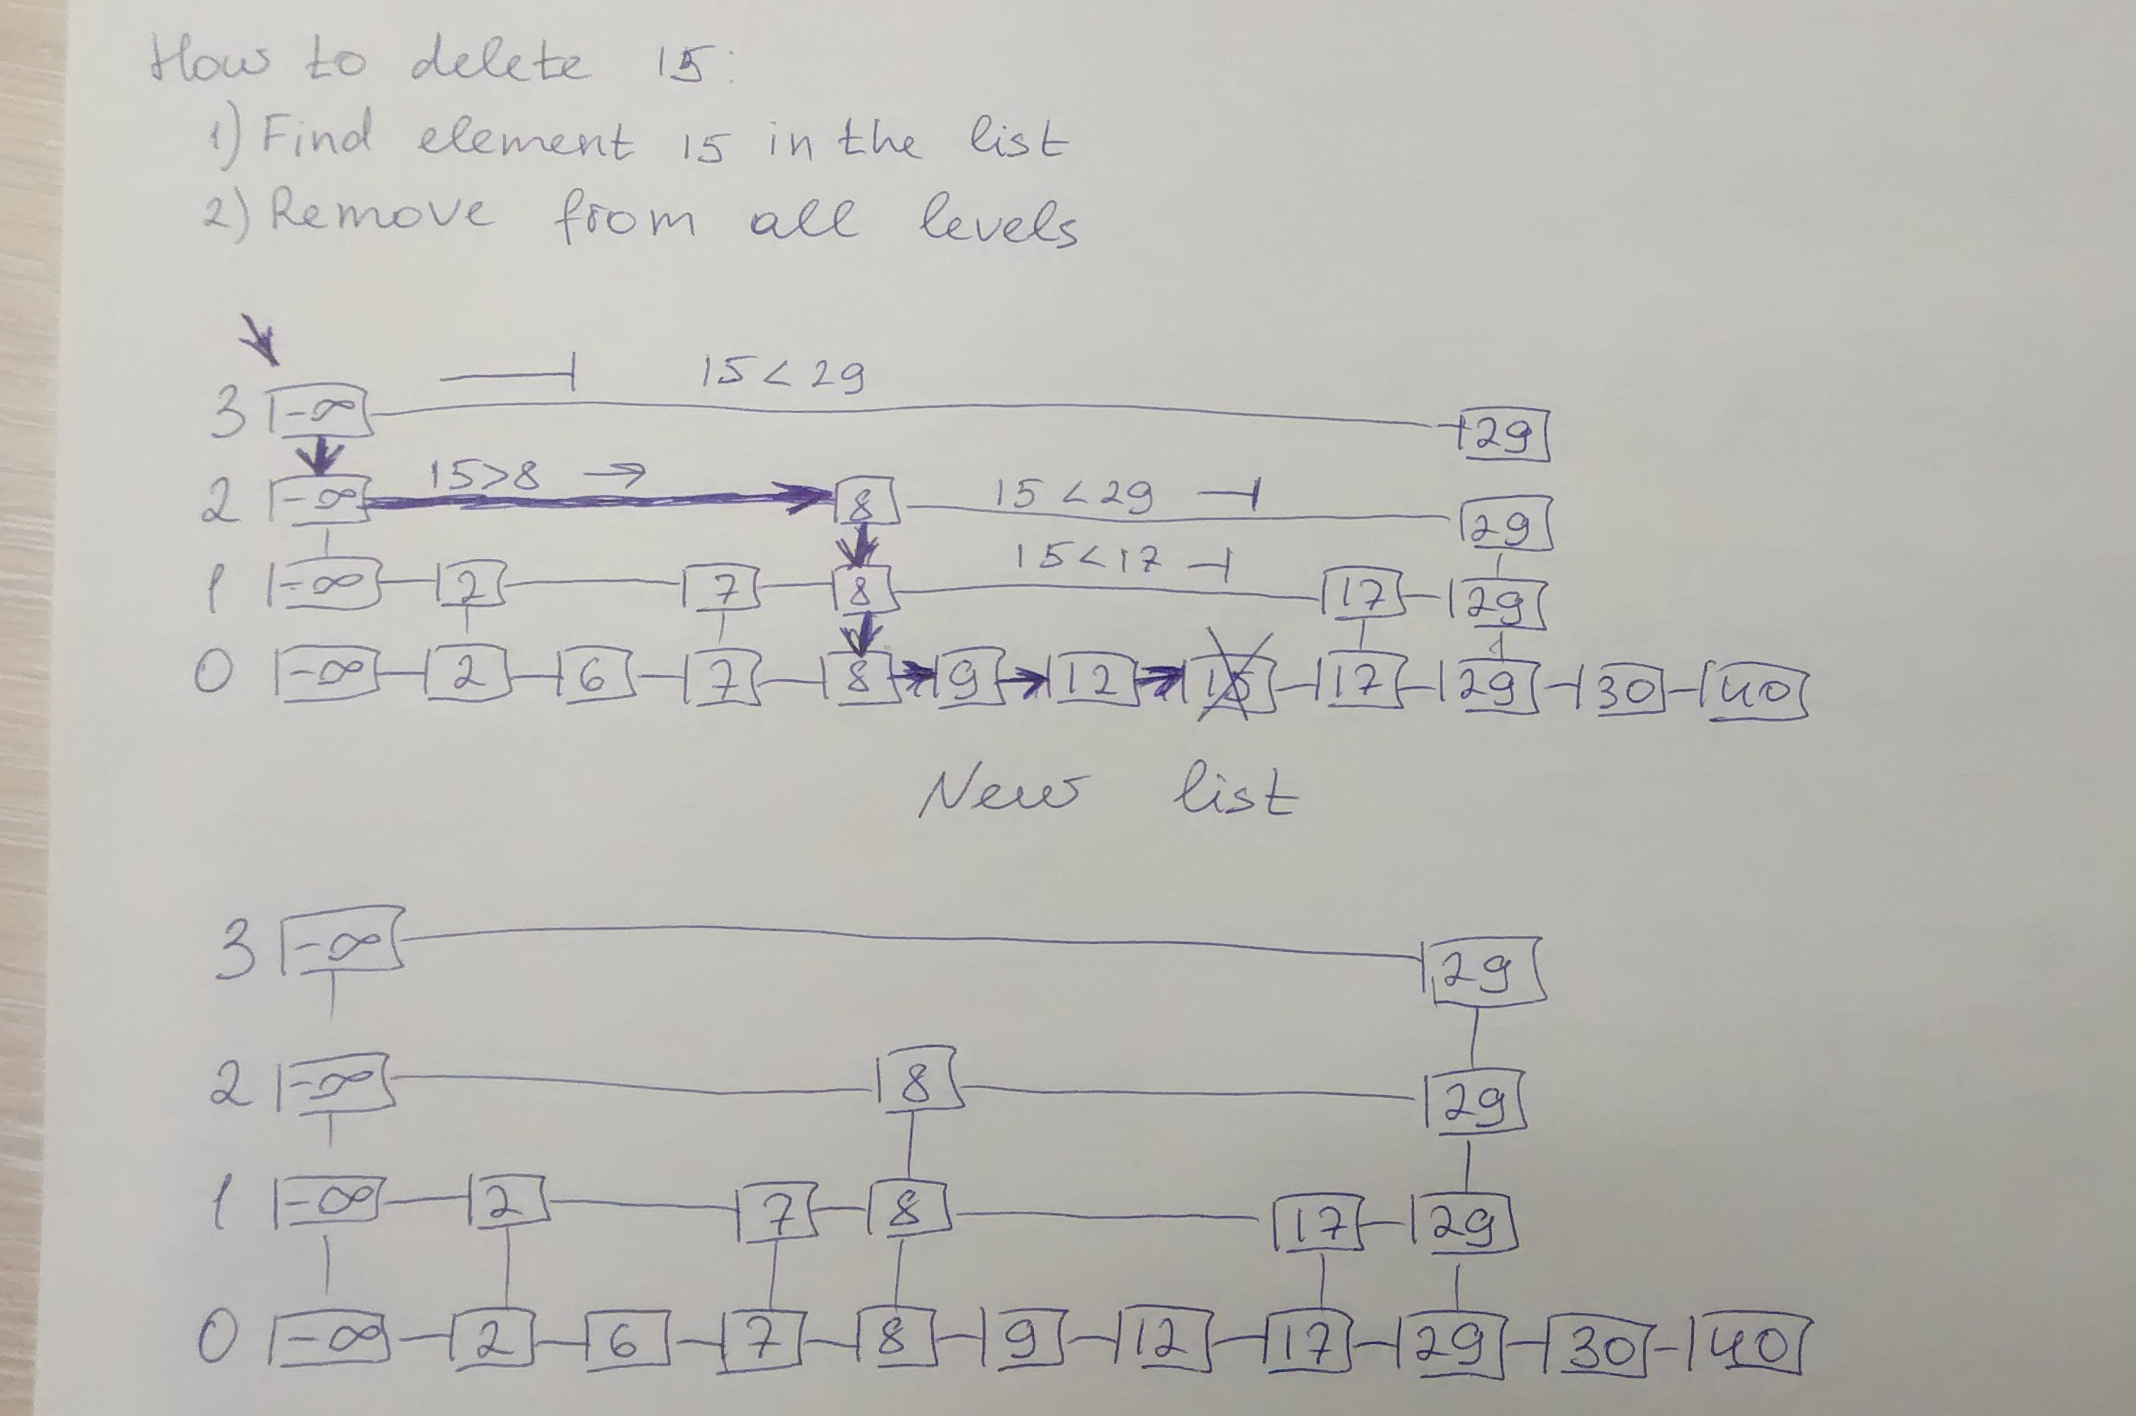 How to delete 15:
1) Find element 15 in the list
2) Remove from all levels
15 < 29
3 -∞ 29
15>8 →
2 -∞ 8 15 < 29 29
15<17
1 -∞ 2 7 8 17 29
0 -∞ 2 6 7 8 9 12 15 17 29 30 40
New list
3 -∞ 29
2 -∞ 8 29
1 -∞ 2 7 8 17 29
0 -∞ 2 6 7 8 9 12 17 29 30 40